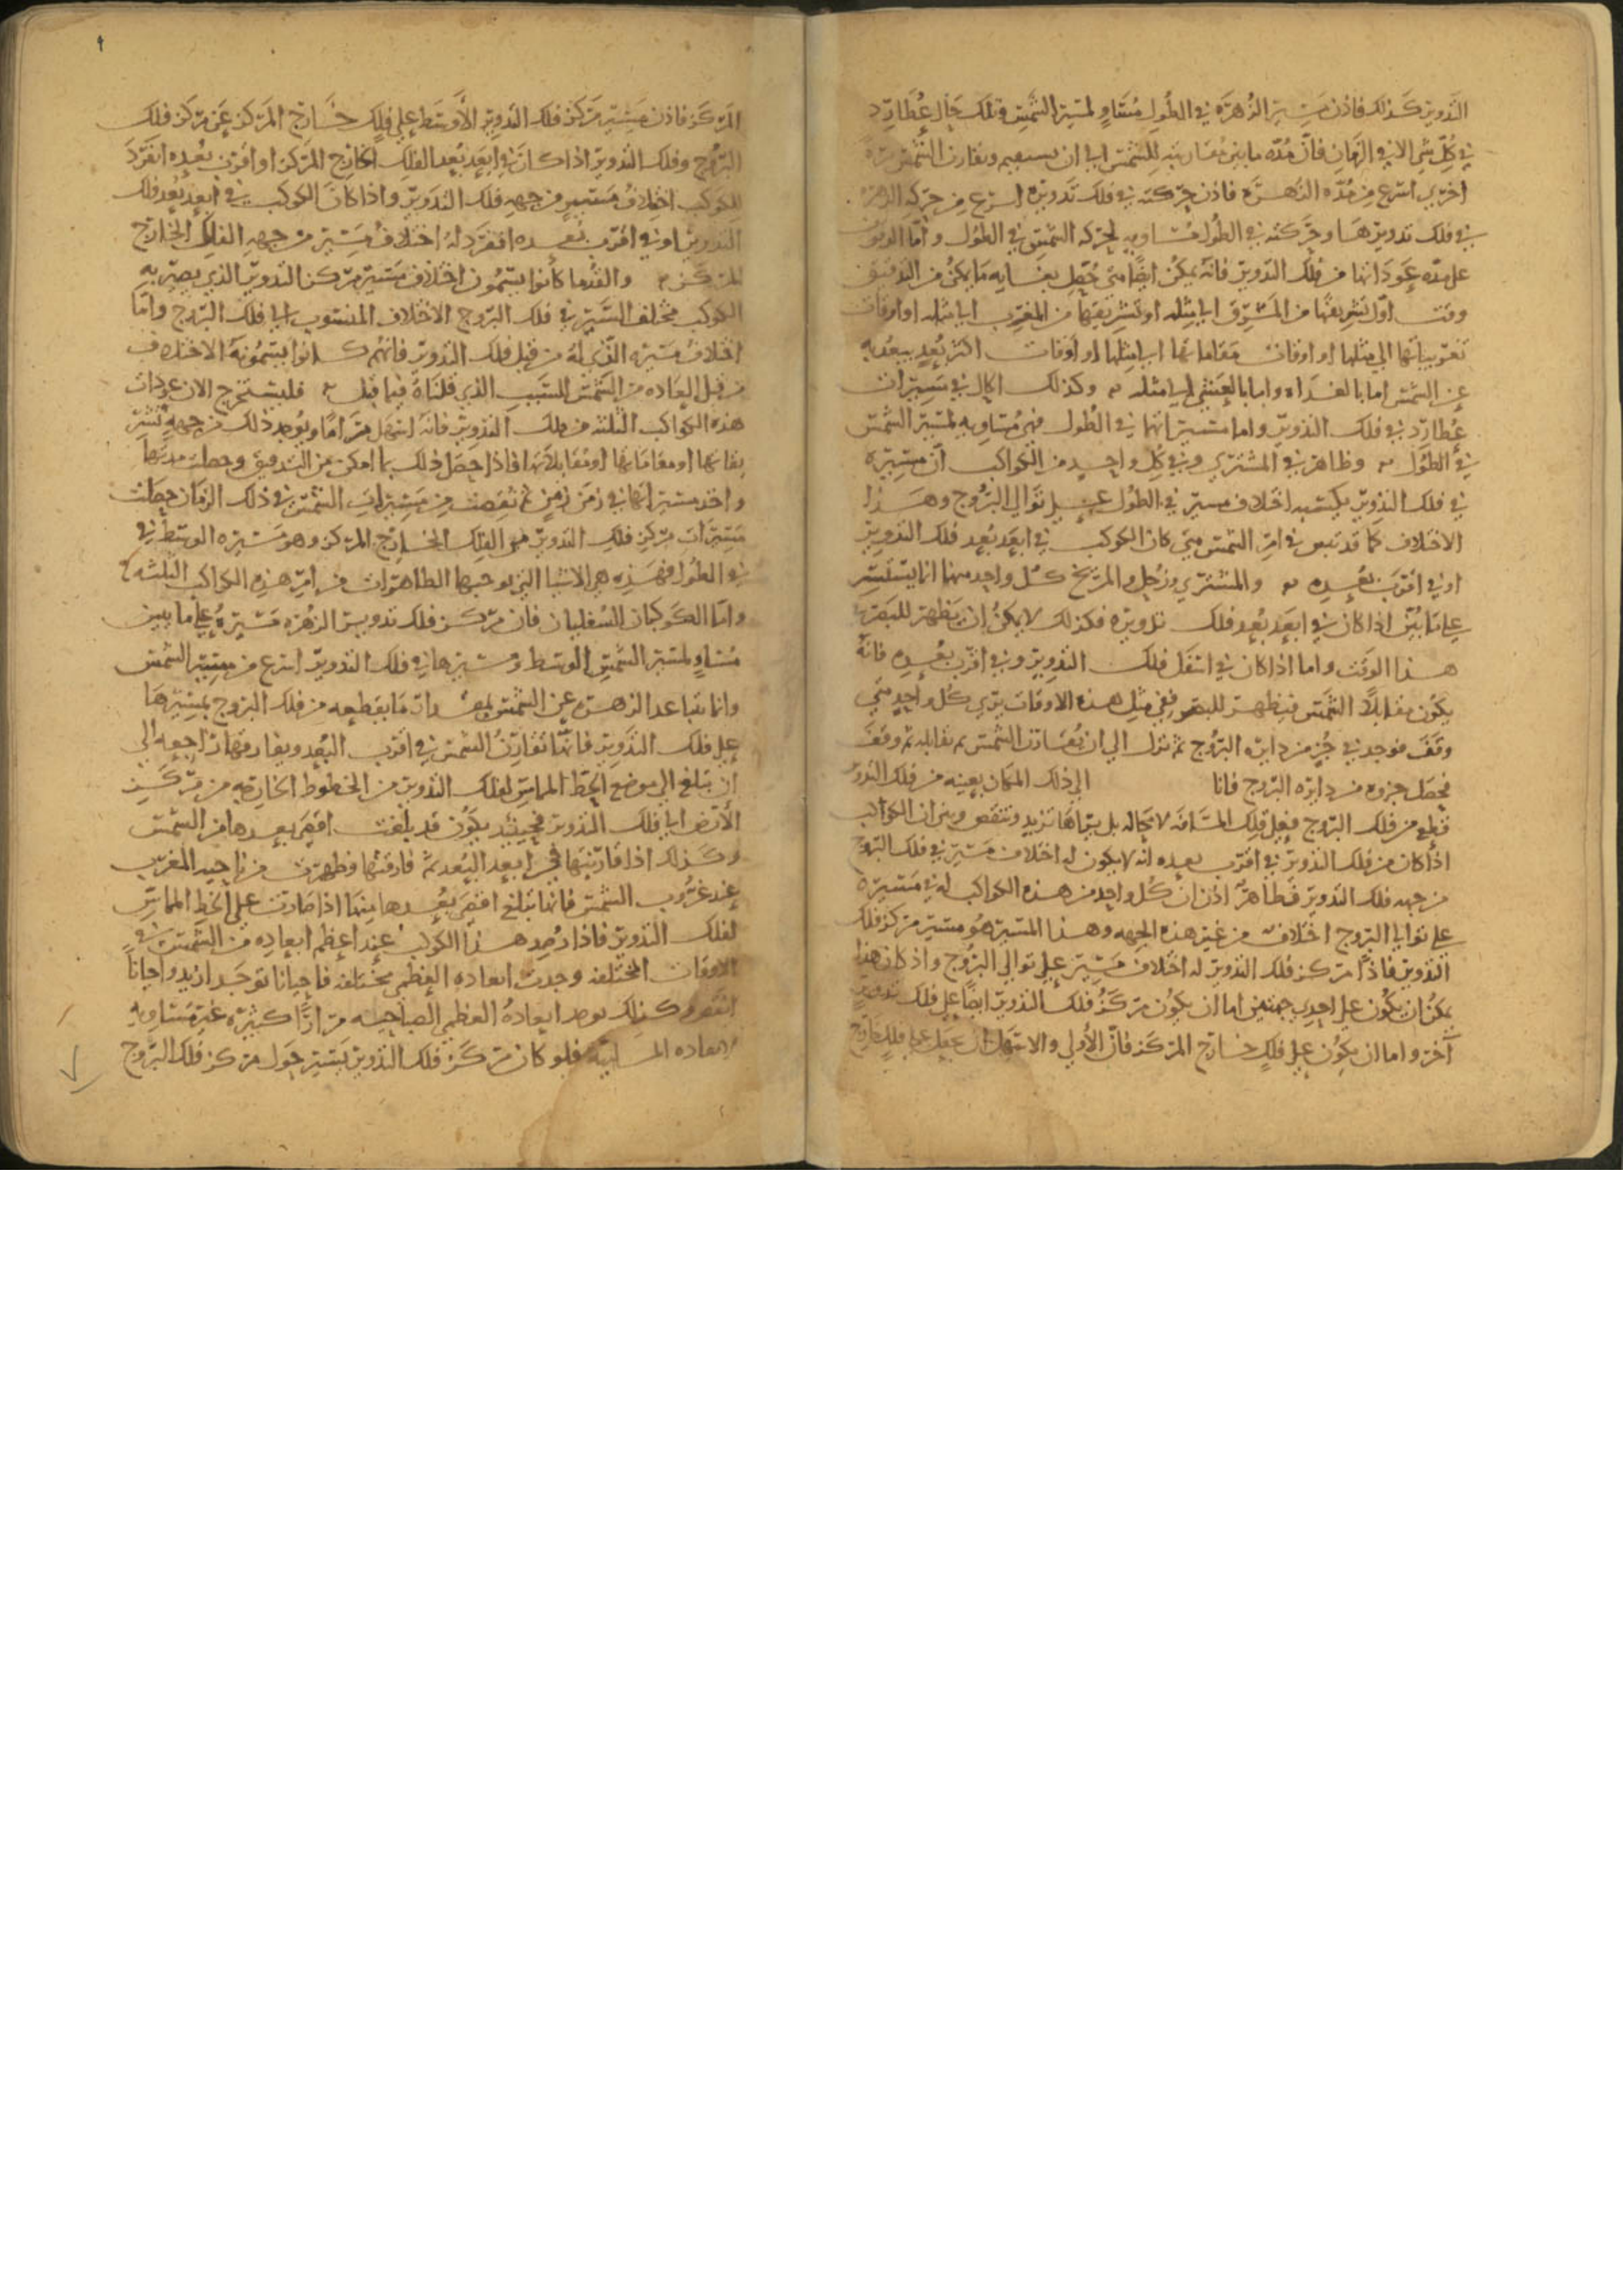 التدوير كذلك فاذن مسير الزهرة في الطول متساوٍ لمسير الشمس وتلك حال عطارد
في كل شي الا في الزمان فانّ مدّه ما بين مقارنته للشمس الى ان يستقيم ويقارن الشمس مرة
اخرى اسرع من مدّه الزهرة فاذن حركته في فلك تدويره اسرع من حركه الزهره
في فلك تدويرها وحركته في الطول متساويه لحركه الشمس في الطول واما الوقوف
على مدّه عوداتها من فلك التدوير فانه يمكن ايضا متى حصل بعنايه ما يمكن من التدقيق
وقت اول تشريقها من المشرق الى مثله او تشريقها من المغرب الى مثله او اوقات
تغريبياتها الى مثلها او اوقات مقاماتها الى مثلها او اوقات اكثر بُعدٍ يبعُد به
عن الشمس اما بالغداه واما بالعشي الى مثله وكذلك الحال في مسيرات
عطارد في فلك التدوير واما مسيراتهما في الطول فهي متساويه لمسير الشمس
في الطول وظاهر في المشتري وفي كل واحد من الكواكب ان مسيره
في فلك التدوير يكسبه اختلاف مسير في الطول على توالي البروج وهذا
الاختلاف كما قد تبين في امر الشمس متى كان الكوكب في ابعد بُعد فلك التدوير
او في اقرب بُعده والمشتري وزحل والمريخ كل واحد منها انما يستتر
على ما بُيّن اذا كان في ابعد بُعد فلك تدويره فكذلك لا يمكن ان يظهر للبصر في
هذا الوقت واما اذا كان في اسفل فلك التدوير وفي اقرب بُعده فانه
يكون مقابلاً للشمس فيظهر للبصر ففي مثل هذه الاوقات يرى كل واحد متى
وقف فوجد في جُزٍ من دايره البروج ثم نزل الى ان يُقارن الشمس ثم يقابله ثم وقف
فحصل جزوه من دايره البروج فانا الى ذلك المكان بعينه من فلك التدوير
قطع من فلك البروج فعل تلك المسافه لا محاله بل يتراها تزيد وتنقص وبين ان الكواكب
اذا كان من فلك التدوير في اقرب بعده انه لا يكون له اختلاف مسير في فلك البروج
من جهه فلك التدوير فظاهرٌ اذن ان كل واحد من هذه الكواكب له في مسيره
على توالي البروج اختلاف من غير هذه الجهه وهذا المسير هو مسير مركز فلك
التدوير فاذًا مركز فلك التدوير له اختلاف مسير على توالي البروج واذ كان هذا
يمكن ان يكون على احدى جهتين اما ان يكون مركز فلك التدوير ايضاً على فلك تدويرٍ
آخر واما ان يكون على فلكٍ خارج المركز فانّ الأولى والاسهل ان يجعل على فلكٍ خارج
المركز فاذن مسير مركز فلك التدوير الأوسط على فلكٍ خارج المركز عن مركز فلك
البروج وفلك التدوير اذا كان في ابعد بُعد الفلك الخارج المركز او اقرب بُعده انفرد
للكوكب اختلاف مسيرٍ من جهه فلك التدوير واذا كان الكوكب في ابعد بُعد فلك
التدوير او في اقرب بُعده انفرد له اختلاف مسير من جهه الفلك الخارج
المركز والقدما كانوا يسمون اختلاف مسير مركز التدوير الذي يصير به
الكوكب مختلف السير في فلك البروج الاختلاف المنسوب الى فلك البروج واما
اختلاف مسيره الذي له من قبل فلك التدوير فانهم كانوا يسمونه الاختلاف
من قبل العاده من الشمس للسبب الذي قلناه فيما قبل فليستخرج الان عودات
هذه الكواكب الثلثه من فلك التدوير فانه اسهل مراماً ويوجد ذلك من جهه
او مقاماتها او مقابلاتها فاذا حصل ذلك بما امكن من التدقيق وحصلت مدتها
واخذ مسيراتها في زمن زمن ثم نقصت من مسيرات الشمس في ذلك الزمان حصلت
مسيرات مركز فلك التدوير من الفلك الخارج المركز وهو مسيره الوسط في
في الطول فهذه هي الاشيا التي توجبها الظاهرات من امر هذه الكواكب الثلثه
واما الكوكبان السفليان فان مركز فلك تدوير الزهره مسيره على ما يبين
متساوٍ لمسير الشمس الوسط ومسيرها في فلك التدوير اسرع من مسير الشمس
وانما تباعد الزهره عن الشمس بمقدار ما يقطعه من فلك البروج بمسيرها
على فلك التدوير فانها تقارن الشمس في اقرب البعد ويفارقها راجعه الى
ان تبلغ الى موضع الخط المماس لفلك التدوير من الخطوط الخارجه من مركز
الأرض الى فلك التدوير فحينئذ يكون قد بلغت اقصى بعدها من الشمس
وكذلك اذا قارنتها في ابعد البعد ثم فارقتها وظهرت من ناحيه المغرب
عند غروب الشمس فانها تبلغ اقصى بُعدها منها اذا صارت على الخط المماسّ
لفلك التدوير فاذا رُصد هذا الكوكب عند اعظم ابعاده من الشمس في
الاوقات المختلفه وجدت ابعاده العظمى مختلفه فاحيانا توجد ازيد واحياناً
انقص وكذلك يوجد ابعاده العظمى الصباحيه مراراً كثيره غير متساويه
لابعاده المسائيه فلو كان مركز فلك التدوير يسير حول مركز فلك البروج